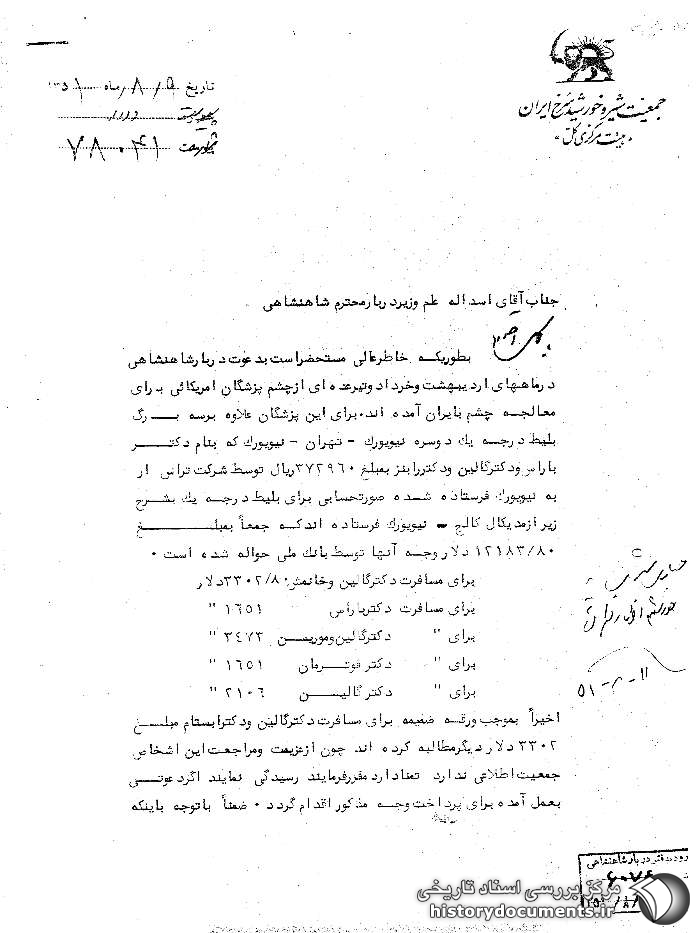 جمعیت شیر و خورشید سرخ ایران
«هیئت مرکزی کل»
تاریخ ۸/۵ ماه ۱۳۵۱
پیوست
شماره ۷۸۰۴۱
جناب آقای اسداله علم وزیر دربار محترم شاهنشاهی
بطوریکه خاطر عالی مستحضر است بدعوت دربار شاهنشاهی
در ماههای اردیبهشت و خرداد و تیر عده ای از چشم پزشگان امریکائی برای
معالجه چشم بایران آمده اند، برای این پزشگان علاوه بر سه برگ
بلیط درجه یك دو سره نیویورك - تهران - نیویورك که بنام دکتر
باراس و دکتر گالین و دکتر رابنز بمبلغ ۳۷۲۹۶۰ ریال توسط شرکت ترانس ار
به نیویورك فرستاده شده صورتحسابی برای بلیط درجه یك بشرح
زیر از مدیکال کالج - نیویورك فرستاده اند که جمعاً بمبلغ
۱۲۱۸۳/۸۰ دلار وجه آنها توسط بانك ملی حواله شده است ۰
برای مسافرت دکتر گالین و خانمش ۳۳۰۲/۸۰ دلار
برای مسافرت دکتر باراس ۱۶۵۱ "
برای " دکتر گالین و موریسن ۳۴۷۳ "
برای " دکتر فوترمان ۱۶۵۱ "
برای " دکتر گالیسن ۲۱۰۶ "
اخیراً بموجب ورقه ضمیمه برای مسافرت دکتر گالین و دکتر ابستام مبلغ
۳۳۰۲ دلار دیگر مطالبه کرده اند چون از عزیمت و مراجعت این اشخاص
جمعیت اطلاعی ندارد تمنا دارد مقرر فرمایند رسیدگی نمایند اگر دعوتی
بعمل آمده برای پرداخت وجه مذکور اقدام گردد ۰ ضمناً با توجه باینکه
۱۱-۸-۵۱
ورود بدفتر دربار شاهنشاهی
مرکز بررسی اسناد تاریخی
historydocuments.ir